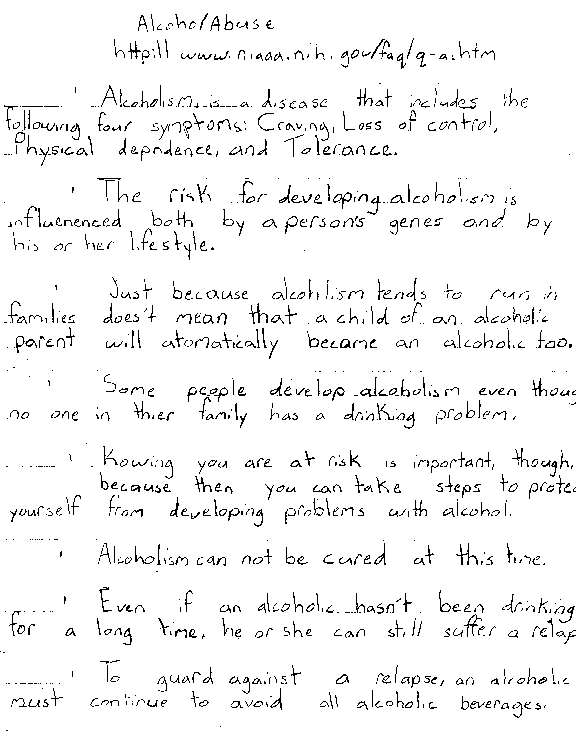 Alcohol Abuse
http:// www.niaaa.nih.gov/faq/q-a.htm
' Alcoholism is a disease that includes the
following four symptoms: Craving, Loss of control,
Physical depndence, and Tolerance.
' The risk for developing alcoholism is
influenenced both by a person's genes and by
his or her lifestyle.
' Just because alcohlism tends to run in
families does't mean that a child of an alcoholic
parent will atomatically became an alcoholic too.
' Some people develop alcoholism even thoug
no one in thier family has a drinking problem.
' Kowing you are at risk is important, though,
because then you can take steps to protec
yourself from developing problems with alcohol.
' Alcoholism can not be cured at this time.
' Even if an alcoholic hasn't been drinking
for a long time, he or she can still suffer a relap
' To guard against a relapse, an alcoholic
must continue to avoid all alcoholic beverages.